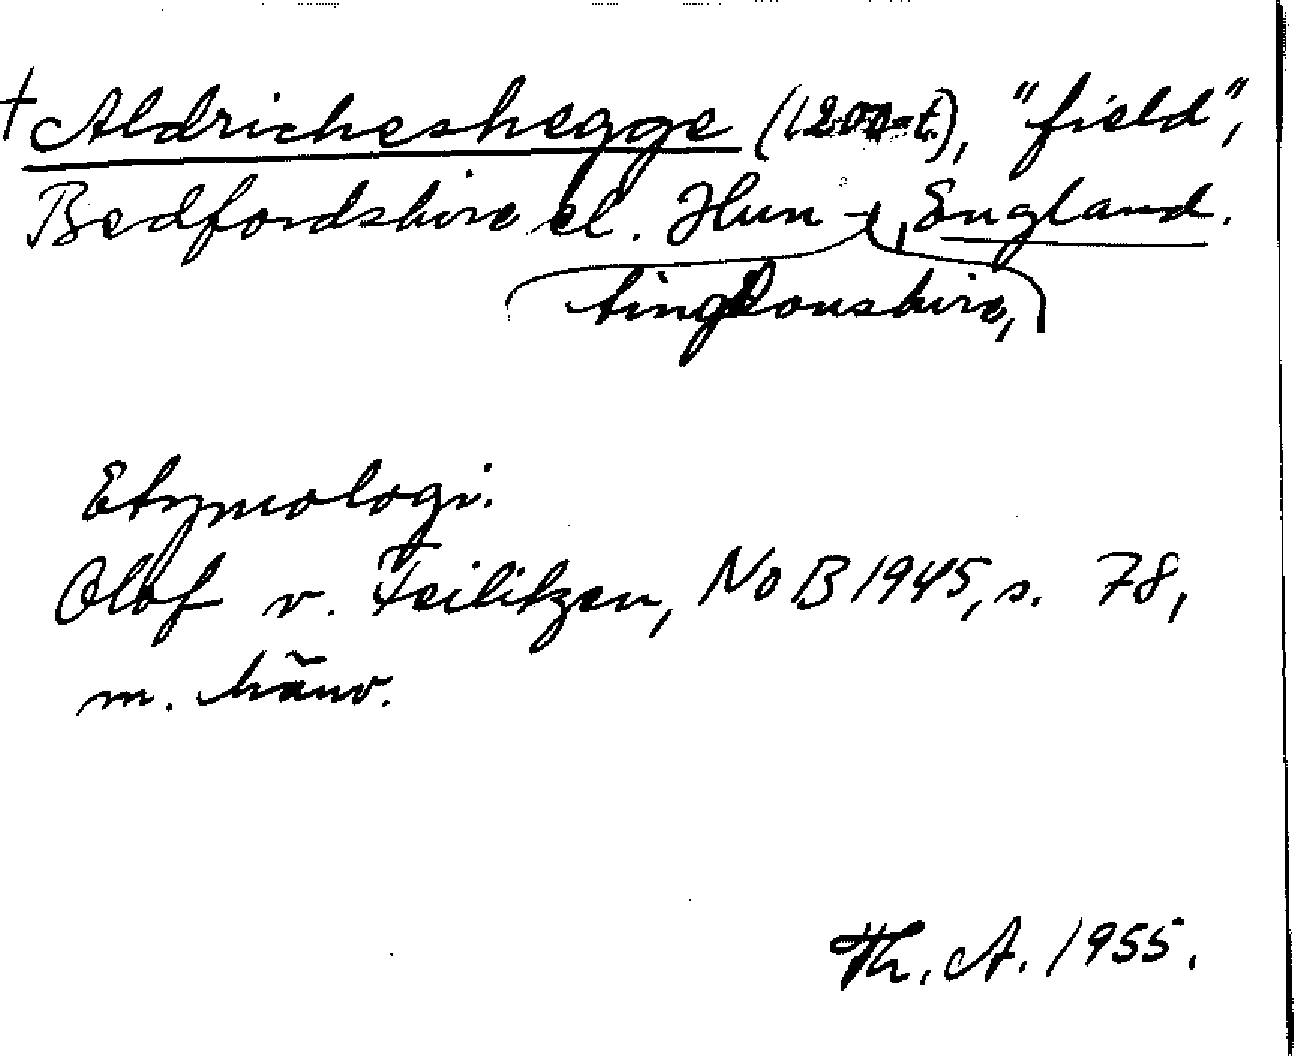 † Aldricheshegge (1200-t.), "field",
Bedfordshire el. Hun-
tingdonshire,
England.
Etymologi.
Olof v. Feilitzen, NoB 1945, s. 78,
m. hänv.
Th. A. 1955.